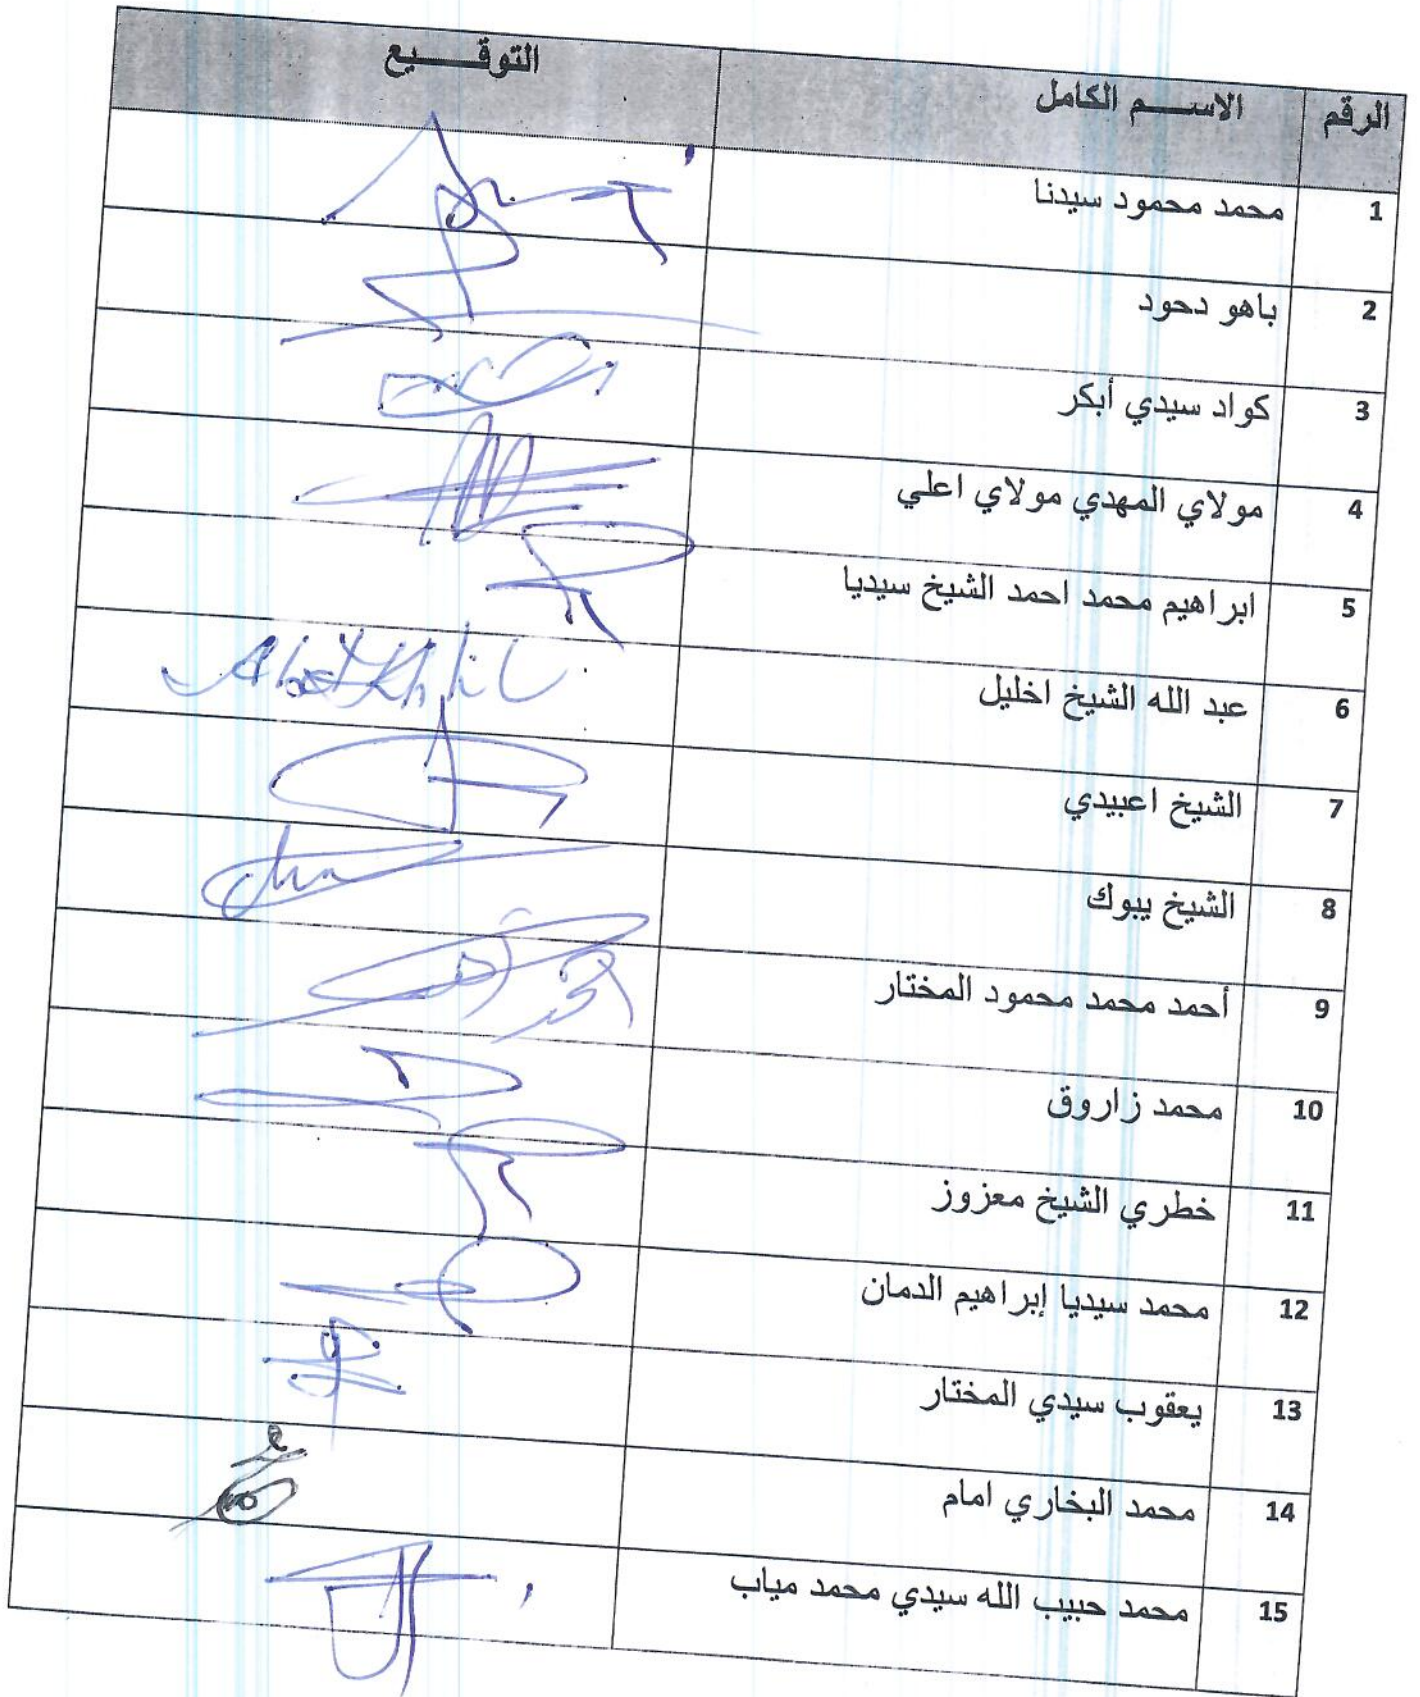 الرقم الاســـم الكامل التوقـــــيع
1 محمد محمود سيدنا
2 باهو دحود
3 كواد سيدي أبكر
4 مولاي المهدي مولاي اعلي
5 ابراهيم محمد احمد الشيخ سيديا
6 عبد الله الشيخ اخليل
7 الشيخ اعبيدي
8 الشيخ يبوك
9 أحمد محمد محمود المختار
10 محمد زاروق
11 خطري الشيخ معزوز
12 محمد سيديا إبراهيم الدمان
13 يعقوب سيدي المختار
14 محمد البخاري امام
15 محمد حبيب الله سيدي محمد مياب